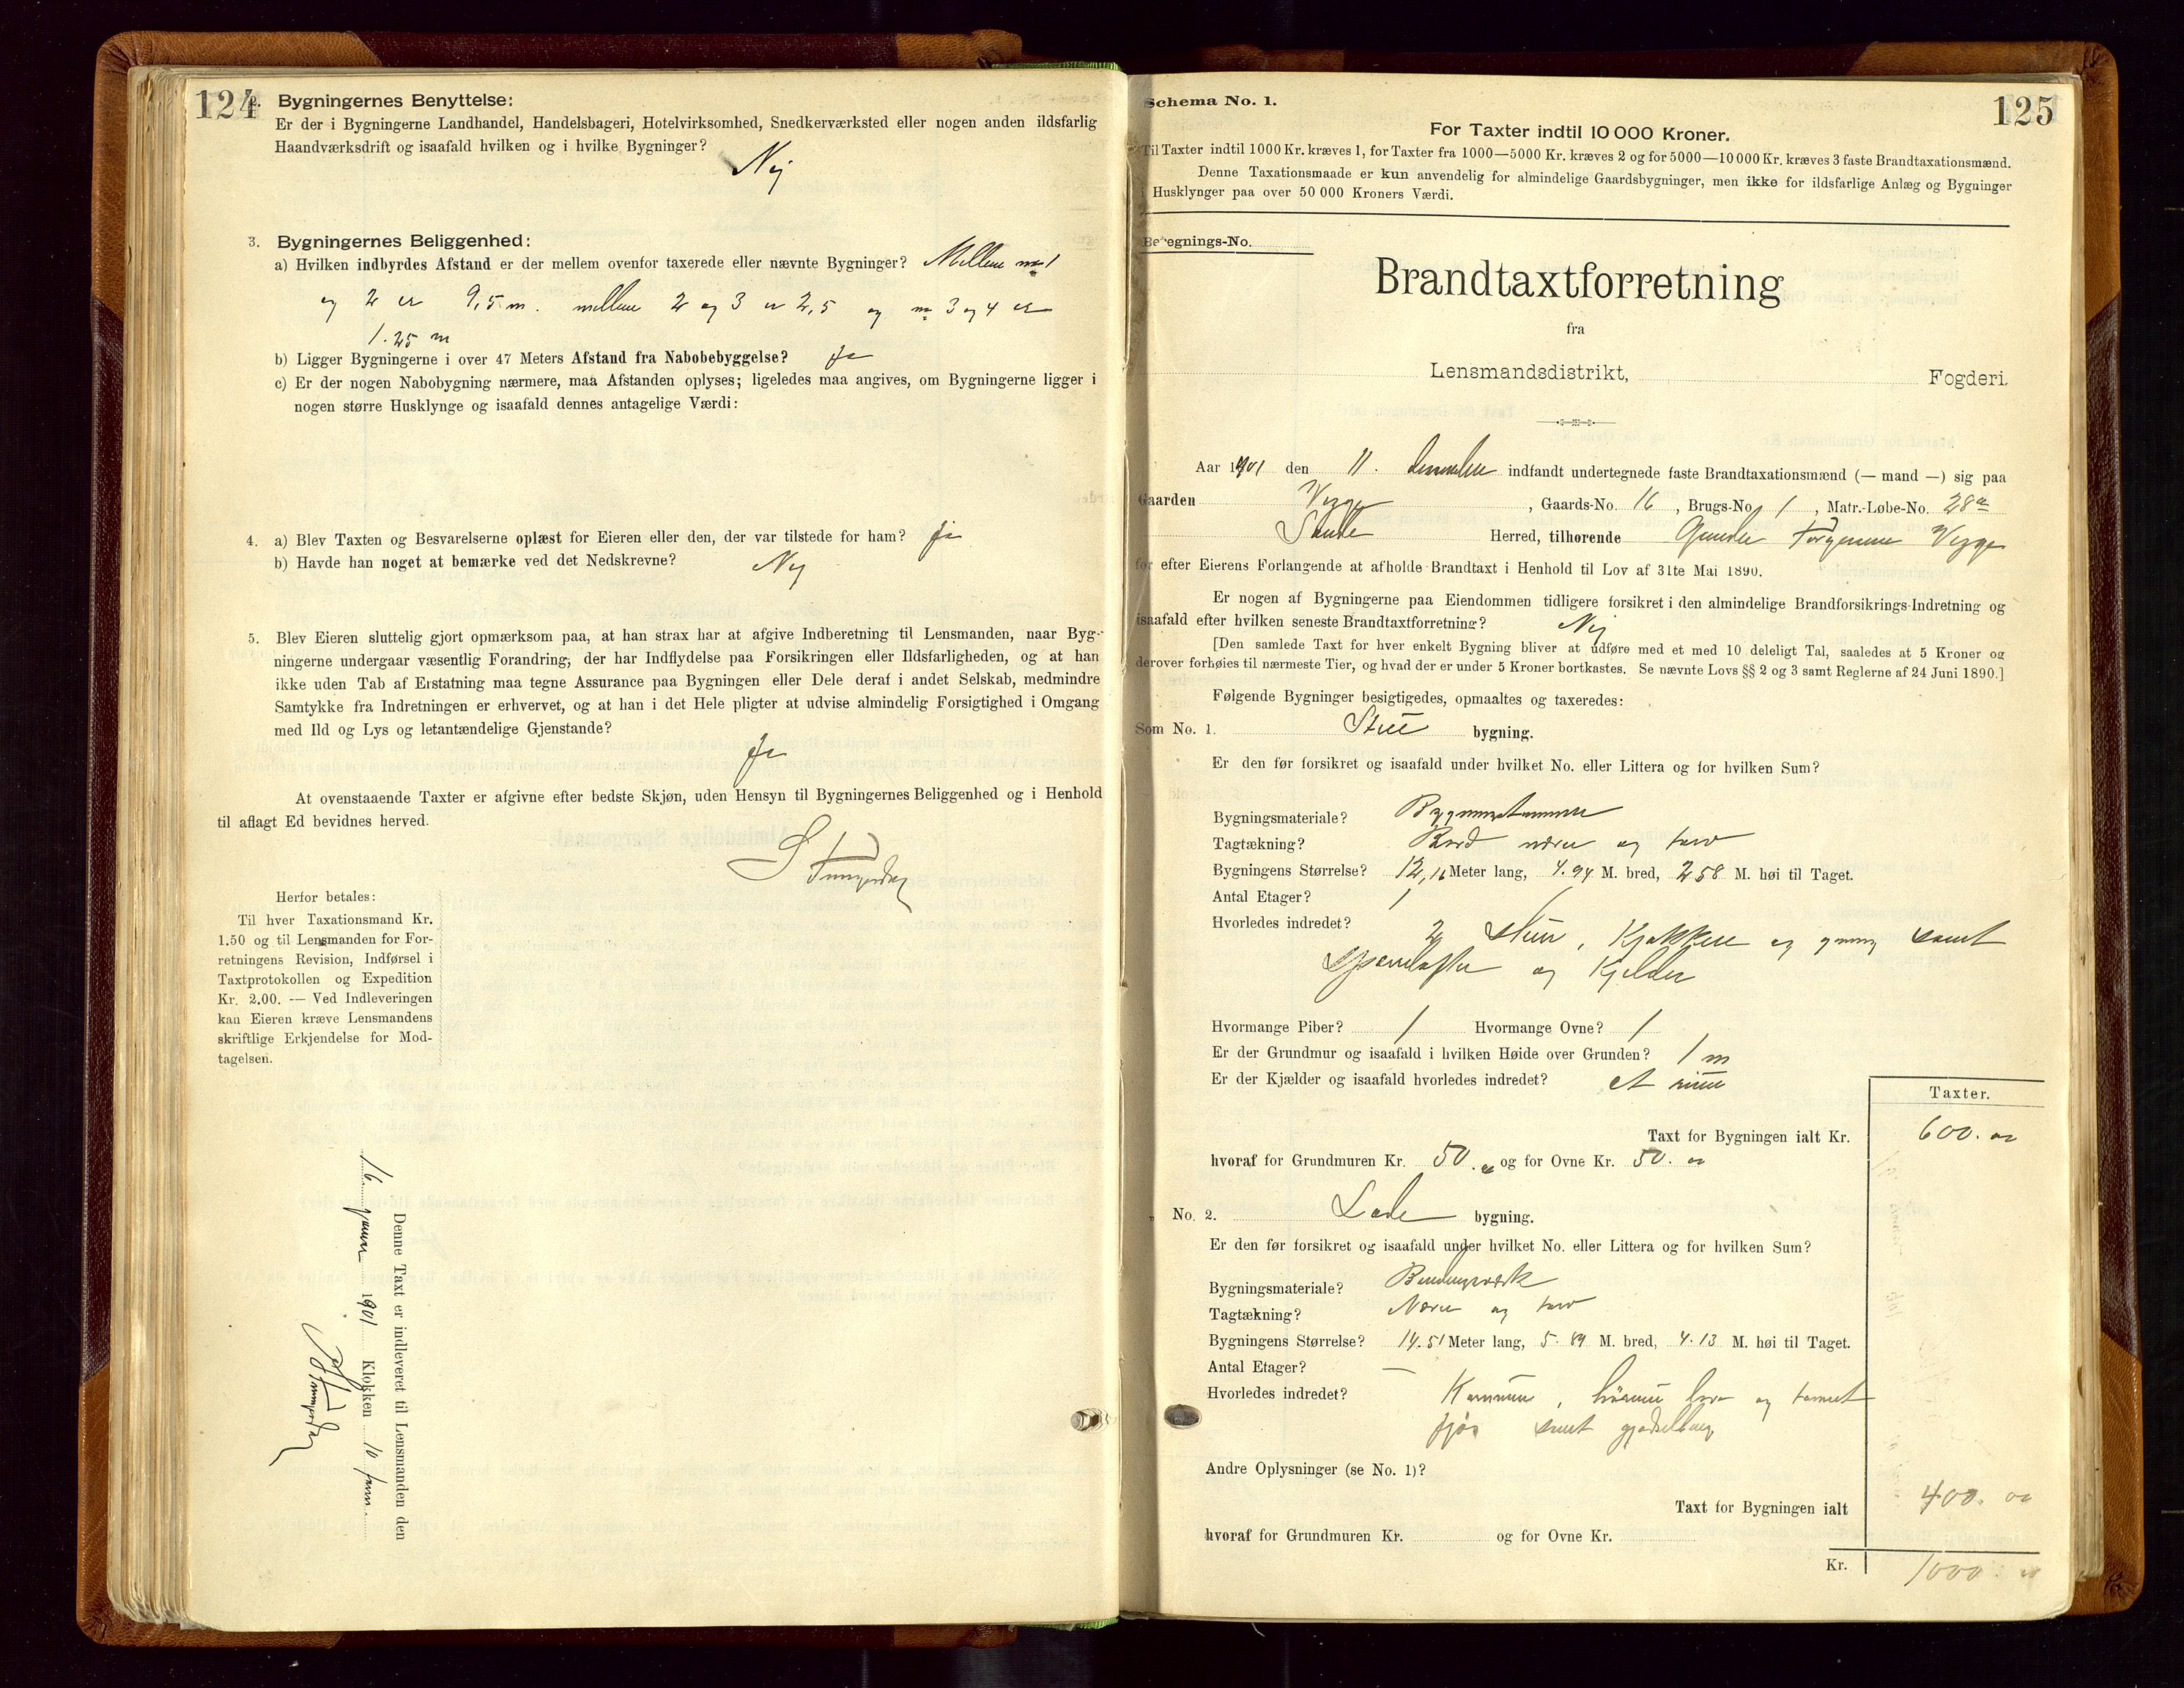 124
2. Bygningernes Benyttelse:
Er der i Bygningerne Landhandel, Handelsbageri, Hotelvirksomhed, Snedkerværksted eller nogen anden ildsfarlig
Haandværksdrift og isaafald hvilken og i hvilke Bygninger?
Nej
3. Bygningernes Beliggenhed:
a) Hvilken indbyrdes Afstand er der mellem ovenfor taxerede eller nævnte Bygninger? Mellem no 1
og 2 er 9,5 m. mellem 2 og 3 er 2,5 og no 3 og 4 er
1.25 m
b) Ligger Bygningerne i over 47 Meters Afstand fra Nabobebyggelse? Ja
c) Er der nogen Nabobygning nærmere, maa Afstanden oplyses; ligeledes maa angives, om Bygningerne ligger i
nogen større Husklynge og isaafald dennes antagelige Værdi:
4. a) Blev Taxten og Besvarelserne oplæst for Eieren eller den, der var tilstede for ham? Ja
b) Havde han noget at bemærke ved det Nedskrevne? Nej
5. Blev Eieren sluttelig gjort opmærksom paa, at han strax har at afgive Indberetning til Lensmanden, naar Byg-
ningerne undergaar væsentlig Forandring, der har Indflydelse paa Forsikringen eller Ildsfarligheden, og at han
ikke uden Tab af Erstatning maa tegne Assurance paa Bygningen eller Dele deraf i andet Selskab, medmindre
Samtykke fra Indretningen er erhvervet, og at han i det Hele pligter at udvise almindelig Forsigtighed i Omgang
med Ild og Lys og letantændelige Gjenstande?
Ja
At ovenstaaende Taxter er afgivne efter bedste Skjøn, uden Hensyn til Bygningernes Beliggenhed og i Henhold
til aflagt Ed bevidnes herved.
Herfor betales:
Til hver Taxationsmand Kr.
1.50 og til Lensmanden for For-
retningens Revision, Indførsel i
Taxtprotokollen og Expedition
Kr. 2.00. — Ved Indleveringen
kan Eieren kræve Lensmandens
skriftlige Erkjendelse for Mod-
tagelsen.
Denne Taxt er indleveret til Lensmanden den
16. januar 1901 Klokken 10 form.
125
Schema No. 1.
For Taxter indtil 10 000 Kroner.
Til Taxter indtil 1000 Kr. kræves 1, for Taxter fra 1000—5000 Kr. kræves 2 og for 5000—10 000 Kr. kræves 3 faste Brandtaxationsmænd.
Denne Taxationsmaade er kun anvendelig for almindelige Gaardsbygninger, men ikke for ildsfarlige Anlæg og Bygninger
i Husklynger paa over 50 000 Kroners Værdi.
Betegnings-No.
Brandtaxtforretning
fra
Lensmandsdistrikt, Fogderi.
Aar 1901 den 11. december indfandt undertegnede faste Brandtaxationsmænd (— mand —) sig paa
Gaarden Vegge, Gaards-No. 16, Brugs-No. 1, Matr.-Løbe-No. 28a
Herred, tilhørende Gunder Vegge
for efter Eierens Forlangende at afholde Brandtaxt i Henhold til Lov af 31te Mai 1890.
Er nogen af Bygningerne paa Eiendommen tidligere forsikret i den almindelige Brandforsikrings-Indretning og
isaafald efter hvilken seneste Brandtaxtforretning? Nej
[Den samlede Taxt for hver enkelt Bygning bliver at udføre med et med 10 deleligt Tal, saaledes at 5 Kroner og
derover forhøies til nærmeste Tier, og hvad der er under 5 Kroner bortkastes. Se nævnte Lovs §§ 2 og 3 samt Reglerne af 24 Juni 1890.]
Følgende Bygninger besigtigedes, opmaaltes og taxeredes:
Som No. 1. Stue bygning.
Er den før forsikret og isaafald under hvilket No. eller Littera og for hvilken Sum?
Bygningsmateriale? Bygningstømmer
Tagtækning? Bord næver og torv
Bygningens Størrelse? 12,16 Meter lang, 4.94 M. bred, 2 58 M. høi til Taget.
Antal Etager? 1
Hvorledes indredet? 2 stuer, Kjøkken og gang samt
og Kjelder
Hvormange Piber? 1 Hvormange Ovne? 1
Er der Grundmur og isaafald i hvilken Høide over Grunden? 1 m
Er der Kjælder og isaafald hvorledes indredet? et rum
Taxter.
Taxt for Bygningen ialt Kr. 600. oo
hvoraf for Grundmuren Kr. 50. og for Ovne Kr. 50. oo
„ No. 2. Lade bygning.
Er den før forsikret og isaafald under hvilket No. eller Littera og for hvilken Sum?
Bygningsmateriale? Bindingsværk
Tagtækning? Næver og torv
Bygningens Størrelse? 14.51 Meter lang, 5.89 M. bred, 4.13 M. høi til Taget.
Antal Etager? —
Hvorledes indredet? Kornrum, hørum og
fjøs samt
Andre Oplysninger (se No. 1)?
Taxt for Bygningen ialt 400. oo
hvoraf for Grundmuren Kr. og for Ovne Kr.
Kr. 1000. oo